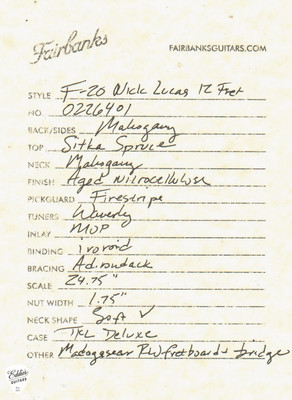 Fairbanks
FAIRBANKSGUITARS.COM
STYLE F-20 Nick Lucas 12 Fret
NO. 0226401
BACK/SIDES Mahogany
TOP Sitka Spruce
NECK Mahogany
FINISH Aged Nitrocellulose
PICKGUARD Firestripe
TUNERS Waverly
INLAY MOP
BINDING Ivoroid
BRACING Adirondack
SCALE 24.75"
NUT WIDTH 1.75"
NECK SHAPE Soft V
CASE TKL Deluxe
OTHER Madagascar RW fretboard & bridge
Eddie's
GUITARS